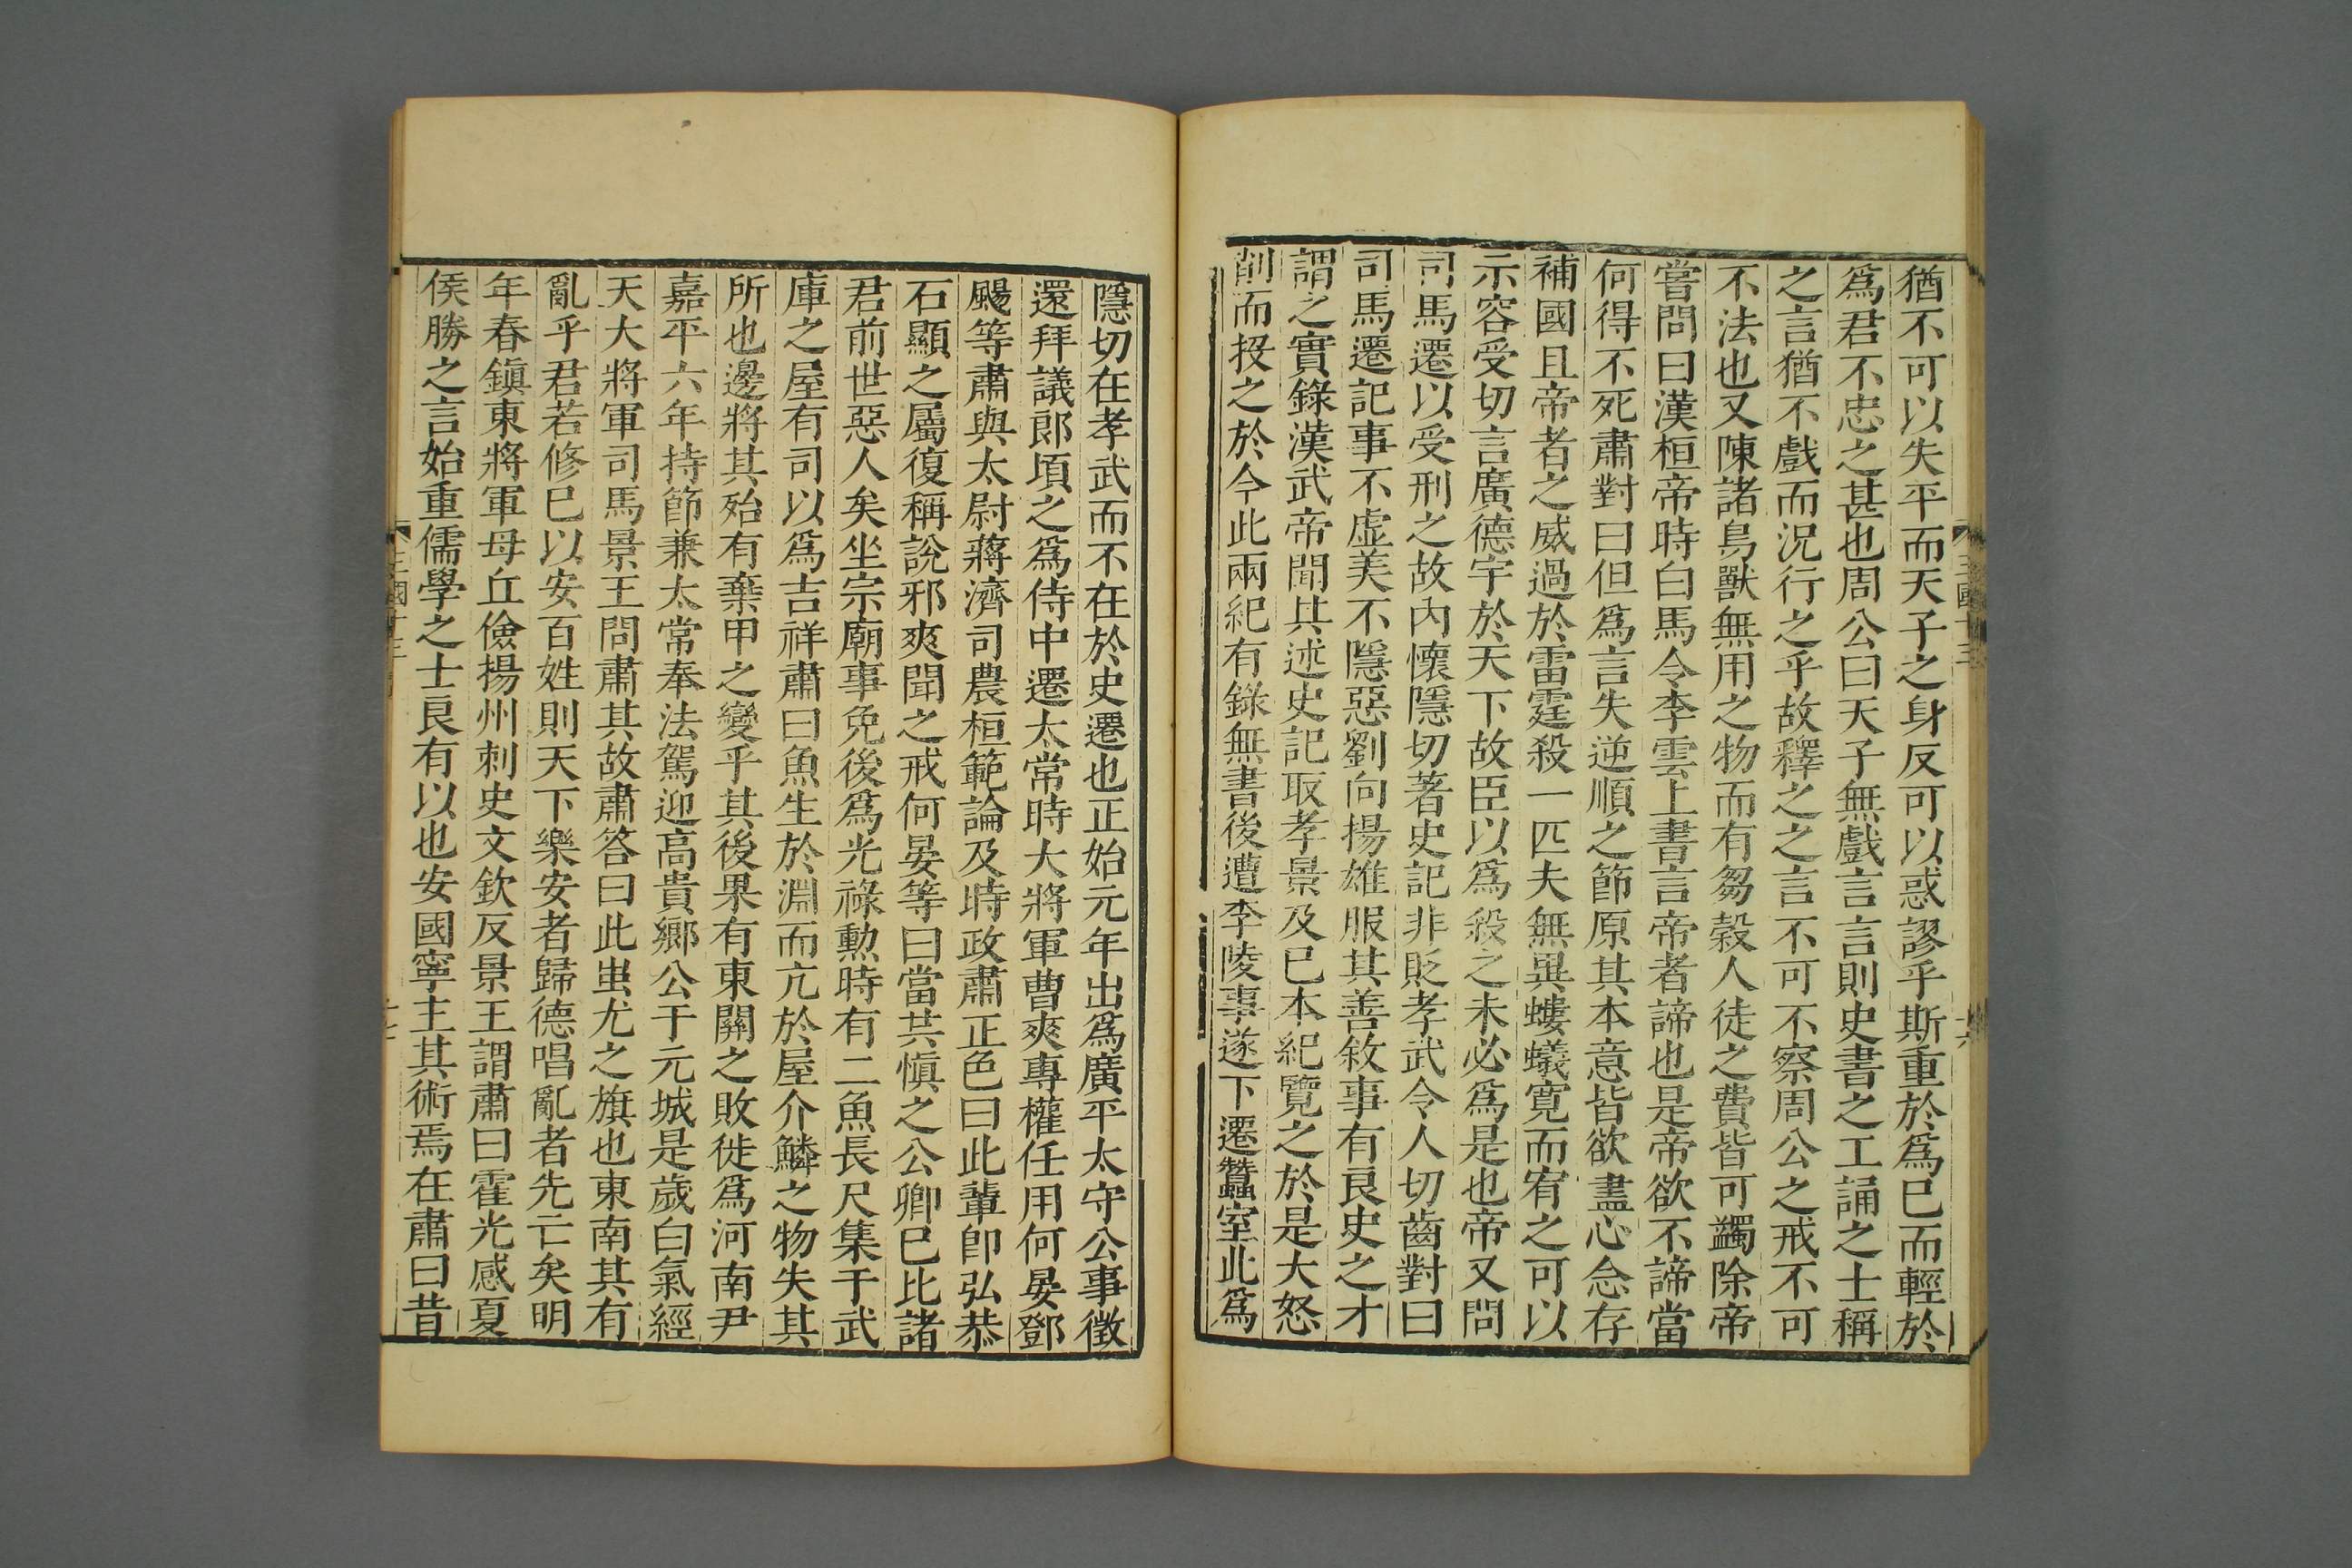 猶不可以失平而天子之身反可以惑謬乎斯重於爲已而輕於
爲君不忠之甚也周公曰天子無戲言言則史書之工誦之士稱
之言猶不戲而況行之乎故釋之之言不可不察周公之戒不可
不法也又陳諸鳥獸無用之物而有芻榖人徒之費皆可蠲除帝
嘗問曰漢桓帝時白馬令李雲上書言帝者諦也是帝欲不諦當
何得不死肅對曰但爲言失逆順之節原其本意皆欲盡心念存
補國且帝者之威過於雷霆殺一匹夫無異螻蟻寛而宥之可以
示容受切言廣德宇於天下故臣以爲殺之未必爲是也帝又問
司馬遷以受刑之故內懷隱切著史記非貶孝武令人切齒對曰
司馬遷記事不虛美不隱惡劉向揚雄服其善敘事有良史之才
謂之實錄漢武帝聞其述史記取孝景及已本紀覽之於是大怒
削而投之於今此兩紀有錄無書後遭李陵事遂下遷蠶室此爲
三國十三
六
隱切在孝武而不在於史遷也正始元年出爲廣平太守公事徵
還拜議郎頃之爲侍中遷太常時大將軍曹爽專權任用何晏鄧
颺等肅與太尉蔣濟司農桓範論及時政肅正色曰此輩卽弘恭
石顯之屬復稱說邪爽聞之戒何晏等曰當共愼之公卿已比諸
君前世惡人矣坐宗廟事免後爲光祿勲時有二魚長尺集于武
庫之屋有司以爲吉祥肅曰魚生於淵而亢於屋介鱗之物失其
所也邊將其殆有棄甲之變乎其後果有東關之敗徙爲河南尹
嘉平六年持節兼太常奉法駕迎高貴鄉公于元城是歲白氣經
天大將軍司馬景王問肅其故肅答曰此蚩尤之旗也東南其有
亂乎君若修已以安百姓則天下樂安者歸德唱亂者先亡矣明
年春鎭東將軍毋丘儉揚州刺史文欽反景王謂肅曰霍光感夏
侯勝之言始重儒學之士良有以也安國寧主其術焉在肅曰昔
三國十三